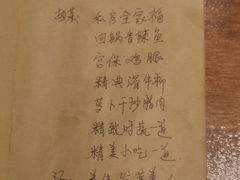 热菜: 私房全家福
回锅香辣鱼
宫保鸡腿
精典滑牛柳
萝卜干炒腊肉
精致时蔬一道
精美小吃一道